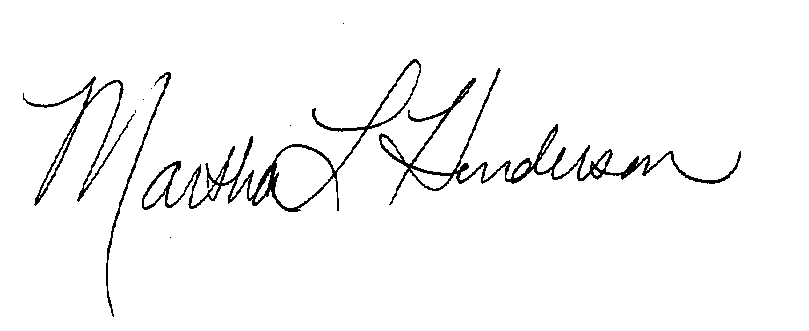 Martha L Henderson